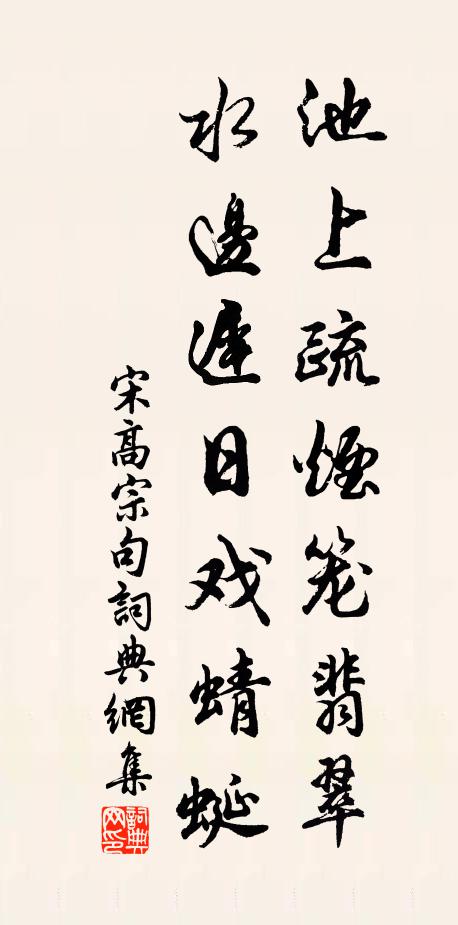 池上疏煙笼翡翠
水邊遲日戏蜻蜓
宋高宗句詞典網集
詞典網印